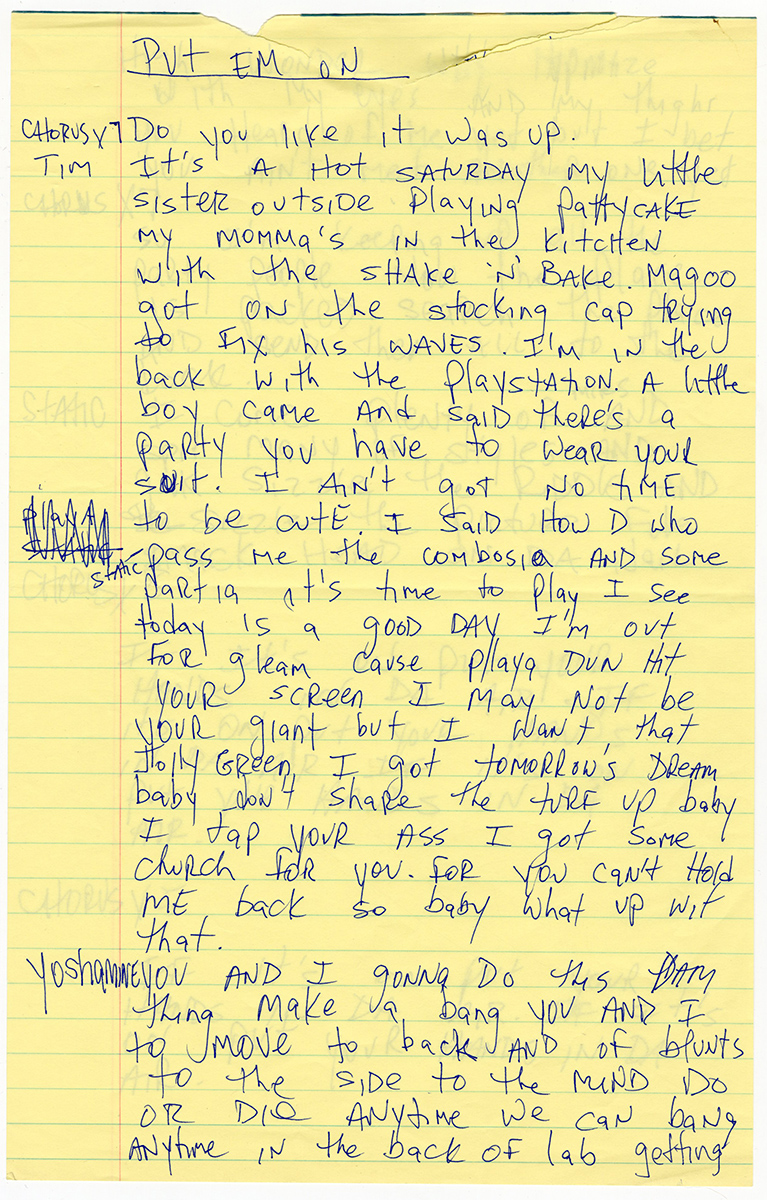 Put EM ON
CHORUS x 7 Do you like it was up.
TIM It's A Hot SATURDAY my little
sister outside Playing PattyCAKE
my momma's in the KitcHEN
with the SHAke 'N' BAKE. Magoo
got ON the stocking cap trying
to Fix his WAVES. I'm in the
back with the PlaystAtioN. A little
boy came And said there's a
party you have to wear your
suit. I AiN't got No tiME
to be cutE. I Said How D who
Static pass me the combosia AND some
Partia it's time to play I see
today is a gooD DAY I'm out
FoR gleam cause Pllaya DUN Hit
youR screen I may Not be
youR giant but I want that
Jolly GReeN I got toMoRRow's DReam
baby don't share the tURF up baby
I tap youR Ass I got some
church foR you. FoR you can't Hold
ME back so baby what up wit
that.
YoshamINE you AND I gonna Do this DAM
thing make va bang you AND I
to move to back AND of blunts
to the side to the MiND Do
OR Die ANytime we can bang
ANytime iN the back of lab getting